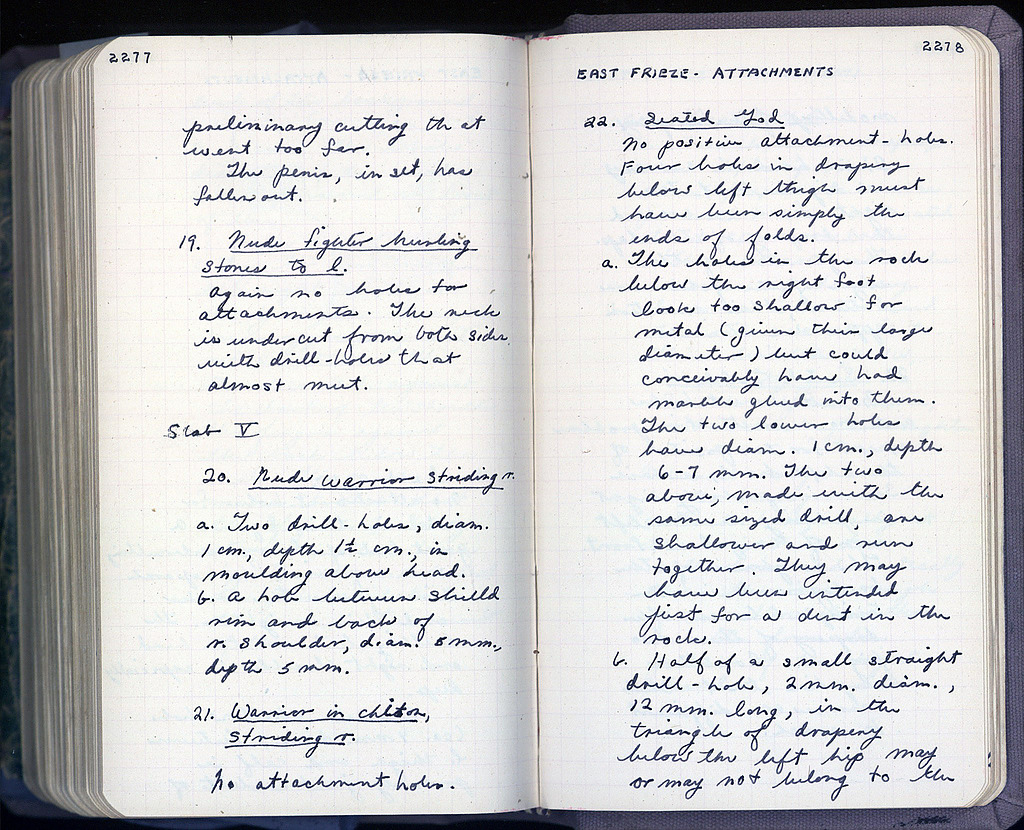 2277
preliminary cutting that
went too far.
The penis, in set, has
fallen out.
19. Nude fighter hurling
stones to l.
Again no holes for
attachments. The neck
is undercut from both sides
with drill-holes that
almost meet.
Slab V
20. Nude warrior striding r.
a. Two drill-holes, diam.
1 cm., depth 1½ cm., in
moulding above head.
b. A hole between shield
rim and back of
r. shoulder, diam. 5 mm.,
depth 5 mm.
21. Warrior in chiton,
striding r.
No attachment holes.
2278
EAST FRIEZE - ATTACHMENTS
22. Seated God
No positive attachment-holes.
Four holes in drapery
below left thigh must
have been simply the
ends of folds.
a. The holes in the rock
below the right foot
look too shallow for
metal (given their large
diameter) but could
conceivably have had
marble glued into them.
The two lower holes
have diam. 1 cm., depth
6-7 mm. The two
above, made with the
same sized drill, are
shallower and run
together. They may
have been intended
just for a dent in the
rock.
b. Half of a small straight
drill-hole, 2 mm. diam.,
12 mm. long, in the
triangle of drapery
below the left hip may
or may not belong to the